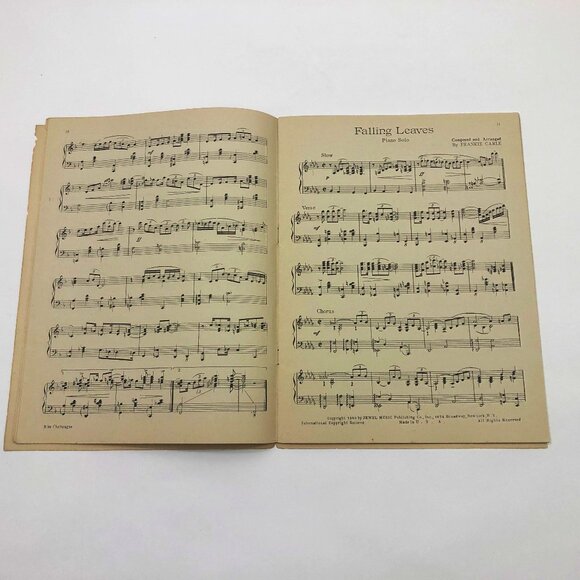 Falling Leaves
Piano Solo
Composed and Arranged
By FRANKIE CARLE
Slow
mf
Verse
mf
Chorus
mf
JEWEL MUSIC Publishing Co., Inc., Broadway, New York, N. Y.
International Copyright Secured Made in U. S. A. All Rights Reserved